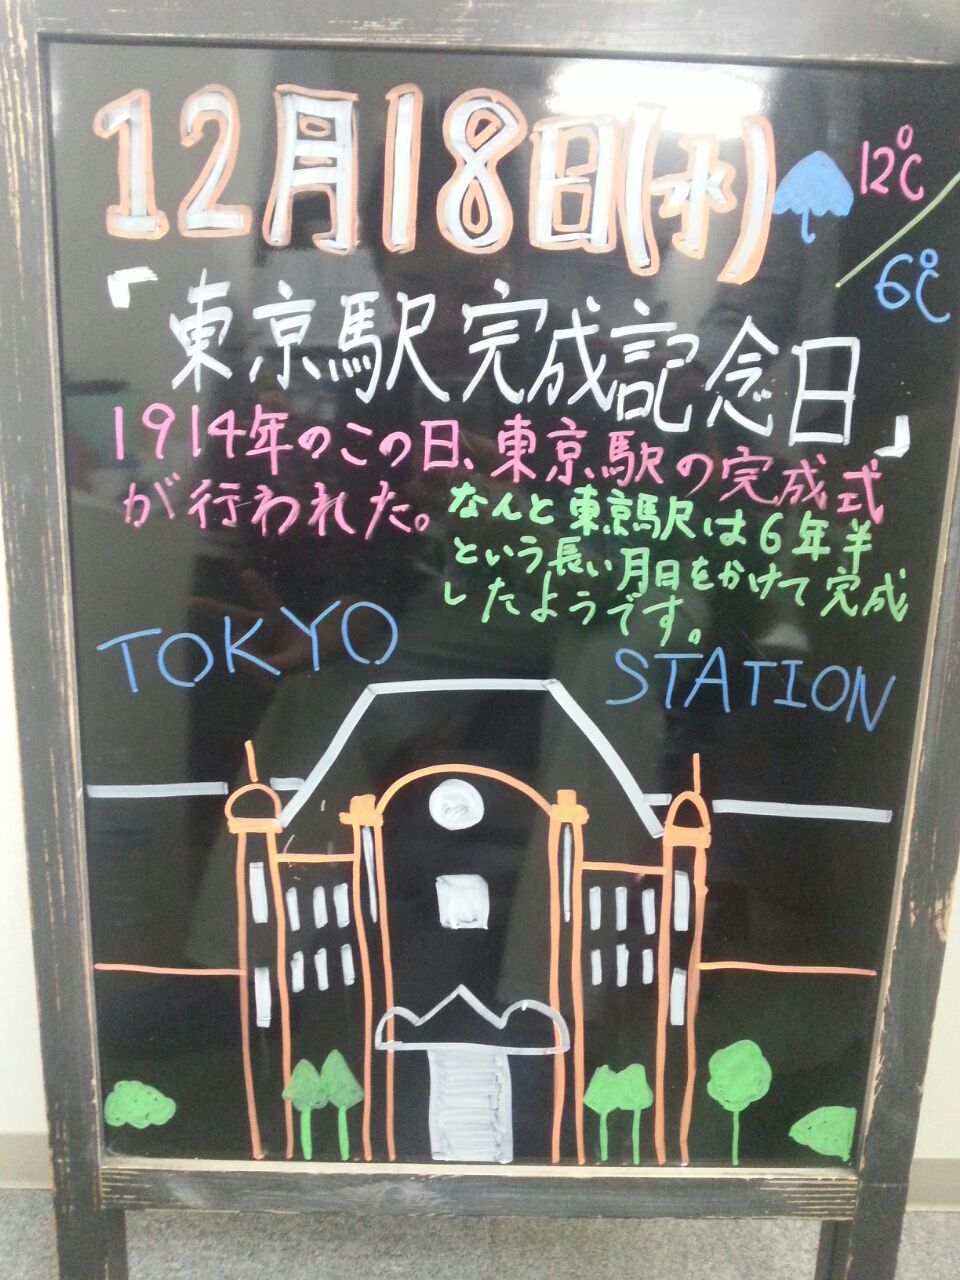 12月18日(水) 12℃/6℃
「東京駅完成記念日」
1914年のこの日、東京駅の完成式
が行われた。
なんと東京駅は6年半
という長い月日をかけて完成
したようです。
TOKYO STATION